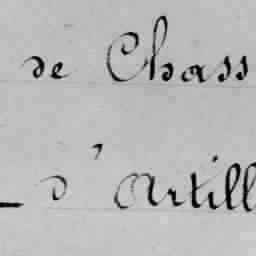 de Chass
d'Artill